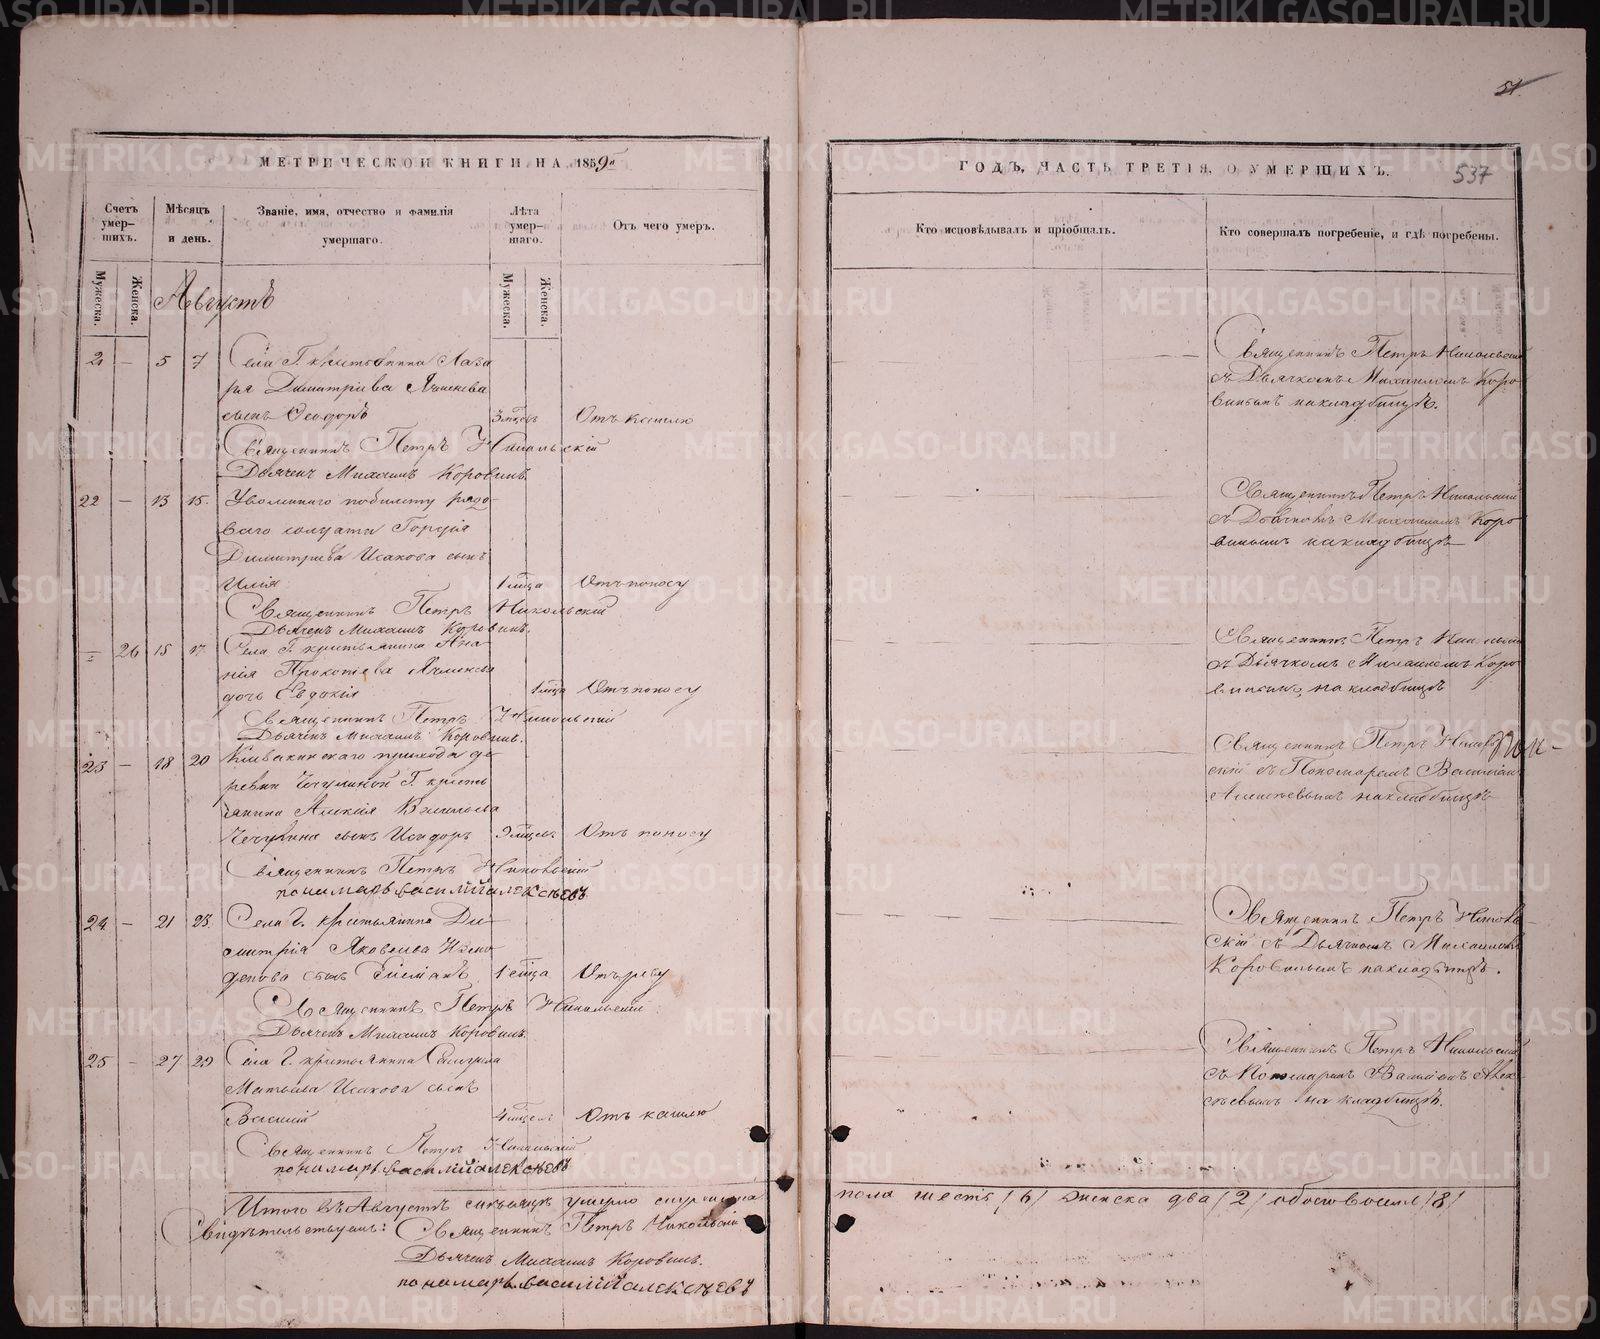 51
537
МЕТРИЧЕСКОЙ КНИГИ НА 1859й
ГОДЪ, ЧАСТЬ ТРЕТІЯ, О УМЕРШИХЪ.
Счетъ умер-шихъ.
Мѣсяцъ и день.
Званіе, имя, отчество и фамилія умершаго.
Лѣта умер-шаго.
Отъ чего умеръ.
Кто исповѣдывалъ и пріобщалъ.
Кто совершалъ погребеніе, и гдѣ погребены.
Мужеска.
Женска.
Мужеска.
Женска.
Августъ
21 — 5 7 Села Г. крестьянина Лаза
ря Димитріева
сынъ Ѳеодоръ 3 мѣсцъ Отъ кашлю
Священникъ Петръ Никольскій
Дьячекъ Михаилъ Коровинъ.
Священникъ Петръ Никольскій
съ Дьячкомъ Михаиломъ Коро
винымъ на кладбищѣ.
22 — 13 15. Уволеннаго по билету рядо
ваго солдата Гордія
Димитріева Исакова сынъ
Илія 1 мѣсца Отъ поносу
Священникъ Петръ Никольскій
Дьячекъ Михаилъ Коровинъ.
Священникъ Петръ Никольскій
съ Дьячкомъ Михаиломъ Коро
винымъ на кладбищѣ
— 26 15 17. Села Г. крестьянина Ана
нія Прокопіева
дочь Евдокія 1 мѣсца Отъ поносу
Священникъ Петръ Никольскій
Дьячекъ Михаилъ Коровинъ.
Священникъ Петръ Никольскій
съ Дьячкомъ Михаиломъ Коро
винымъ, на кладбищѣ
23 — 18 20 прихода де
ревни Г. кресть
янина Алексія Васильева
сынъ Исидоръ 9 мѣсцъ Отъ поносу
Священникъ Петръ Никольскій
пономарь василій алексѣевъ
Священникъ Петръ Николь
скій съ Пономаремъ Василіемъ
Алексѣевымъ на кладбищѣ
24 — 21 23. Села Г. крестьянина Ди
митрія Яковлева
сынъ 1 мѣсца
Священникъ Петръ Никольскій
Дьячекъ Михаилъ Коровинъ.
Священникъ Петръ Николь
скій съ Дьячкомъ Михаиломъ
Коровинымъ на кладбищѣ.
25 — 27 29 Села Г. крестьянина
Матвѣева Исакова сынъ
Василій 4 мѣсцъ Отъ кашлю
Священникъ Петръ Никольскій
пономарь василій алексѣевъ
Священникъ Петръ Никольскій
съ Пономаремъ Василіемъ Алек
сѣевымъ на кладбищѣ.
Итого въ Августѣ мѣсяцѣ умерло мужеска
пола шесть /6/ женска два /2/ обоего восемь /8/
Свидѣтельствуемъ: Священникъ Петръ Никольскій
Дьячекъ Михаилъ Коровинъ.
пономарь василій алексѣевъ
METRIKI.GASO-URAL.RU